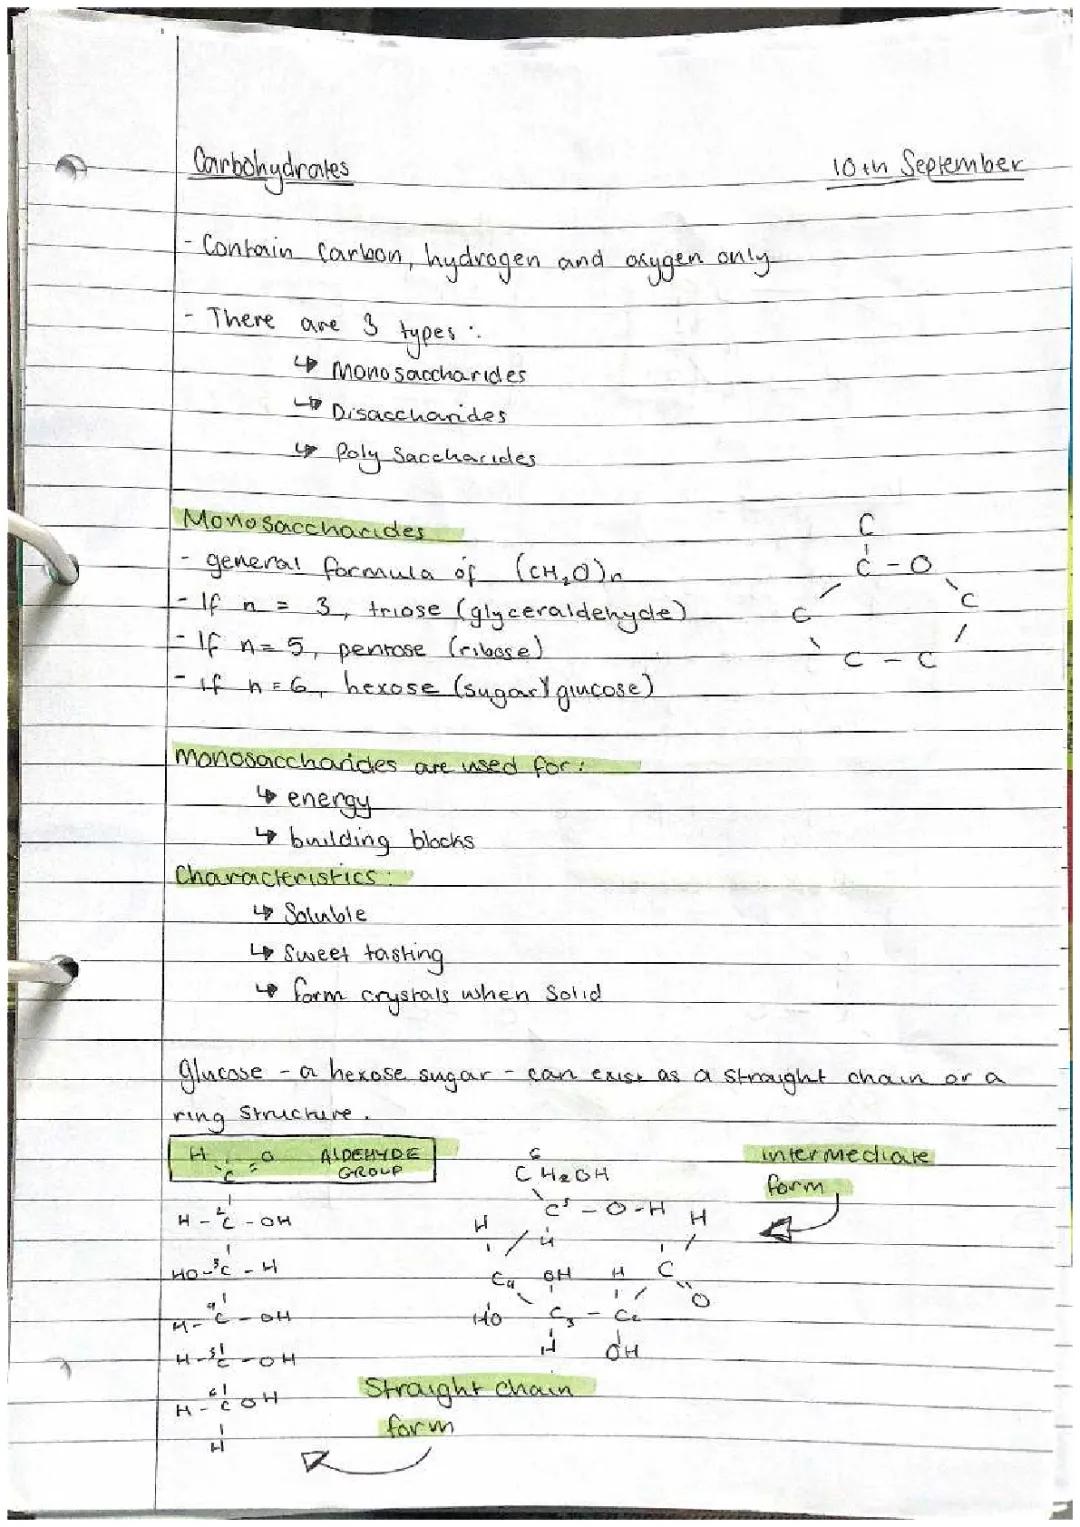 Carbohydrates 10th September
- Contain Carbon, hydrogen and oxygen only
- There are 3 types :
↳ Monosaccharides
↳ Disaccharides
↳ Poly Saccharides
Monosaccharides
- general formula of (CH₂O)n
- If n = 3, triose (glyceraldehyde)
- If n = 5, pentose (ribose)
- If n = 6, hexose (sugar) glucose)
C
C - O
C C
C - C
Monosaccharides are used for :
↳ energy
↳ building blocks
Characteristics :
↳ Soluble
↳ Sweet tasting
↳ form crystals when Solid
Glucose - a hexose sugar - can exist as a straight chain or a
ring structure .
H O ALDEHYDE
C GROUP
H - ²C - OH
HO - ³C - H
H - ⁴C - OH
H - ⁵C - OH
H - ⁶C OH
H
6
CH₂OH
C⁵ - O - H H
H H
C₄ OH H C
HO C₃ - C₂ O
H OH
intermediate
form
Straight chain
form